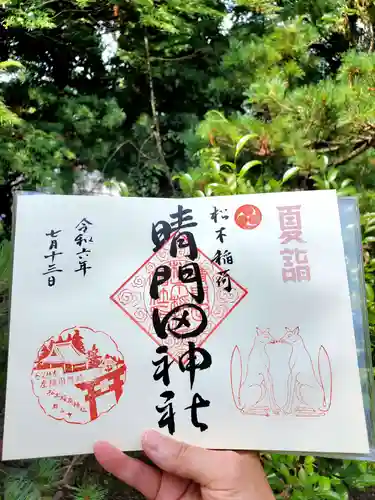 夏詣
松木稲荷
晴門田神社
令和六年
七月十三日